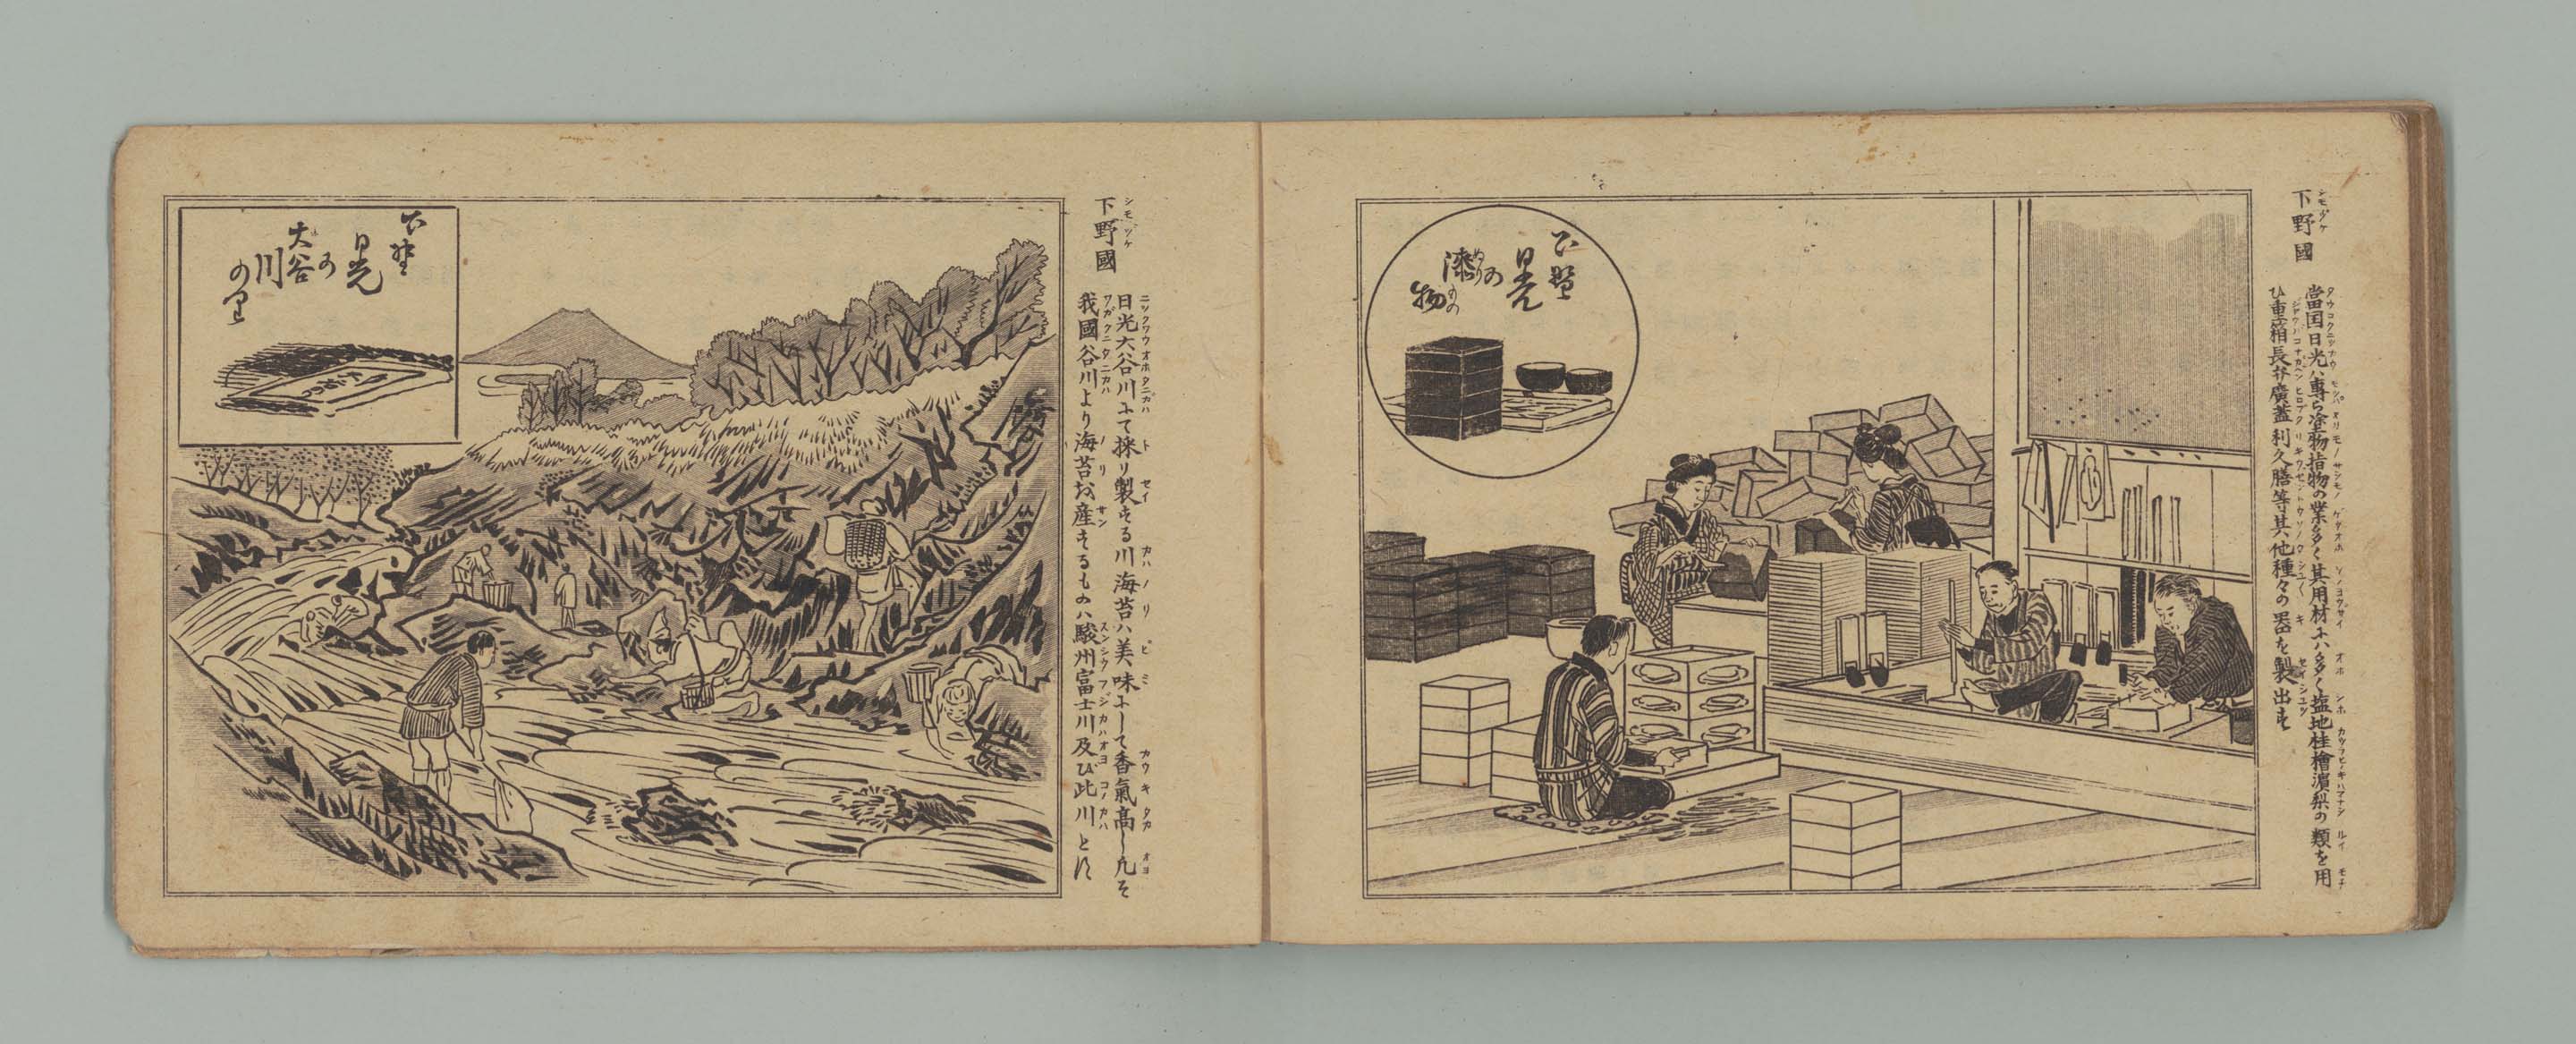 下野國
當国日光ハ專ら塗物指物の業多く其用材ニハ多く塩地桂檜濱梨の類を用
ひ重箱長弁廣蓋利久膳等其他種々の器を製出す
下野
日光の
漆物
下野國
日光大谷川にて採り製する川海苔ハ美味にして香氣高し凡そ
我國谷川より海苔を産するものハ駿州富士川及び此川とす
下野
日光の
大谷
川
のり